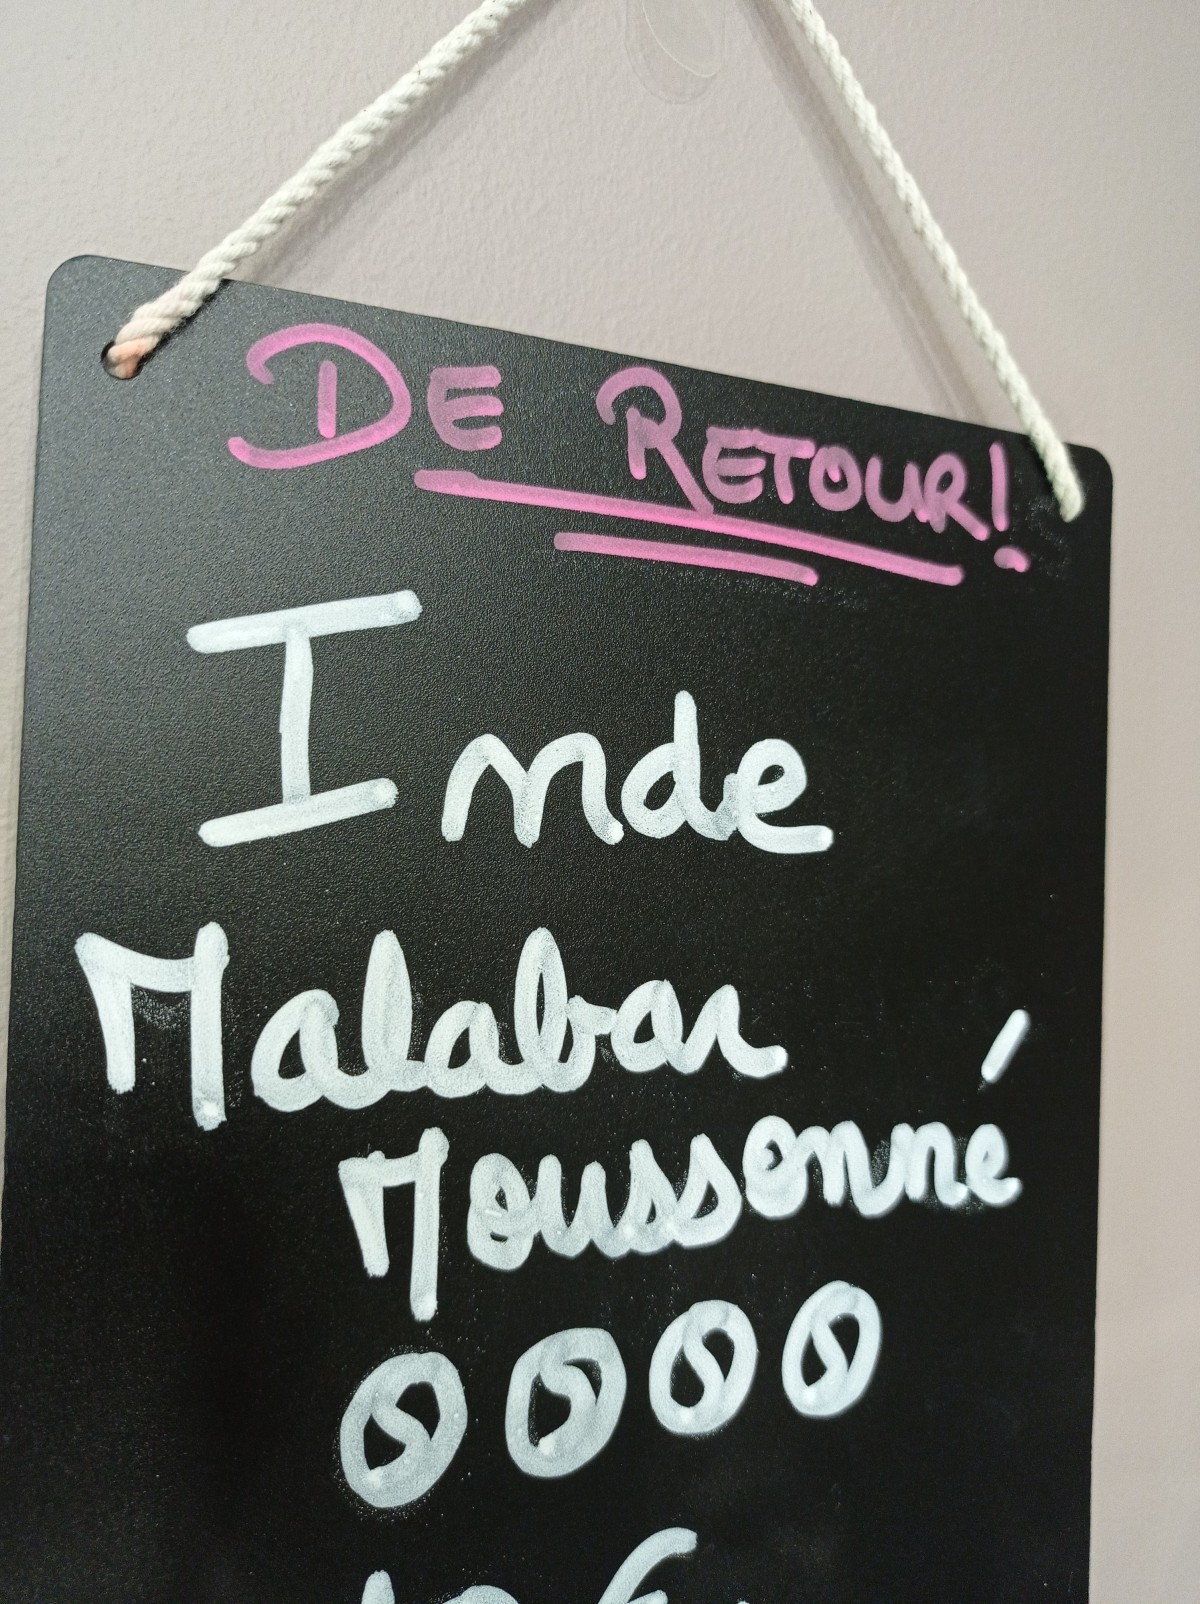 DE RETOUR!
Inde
Malabar
Moussonné